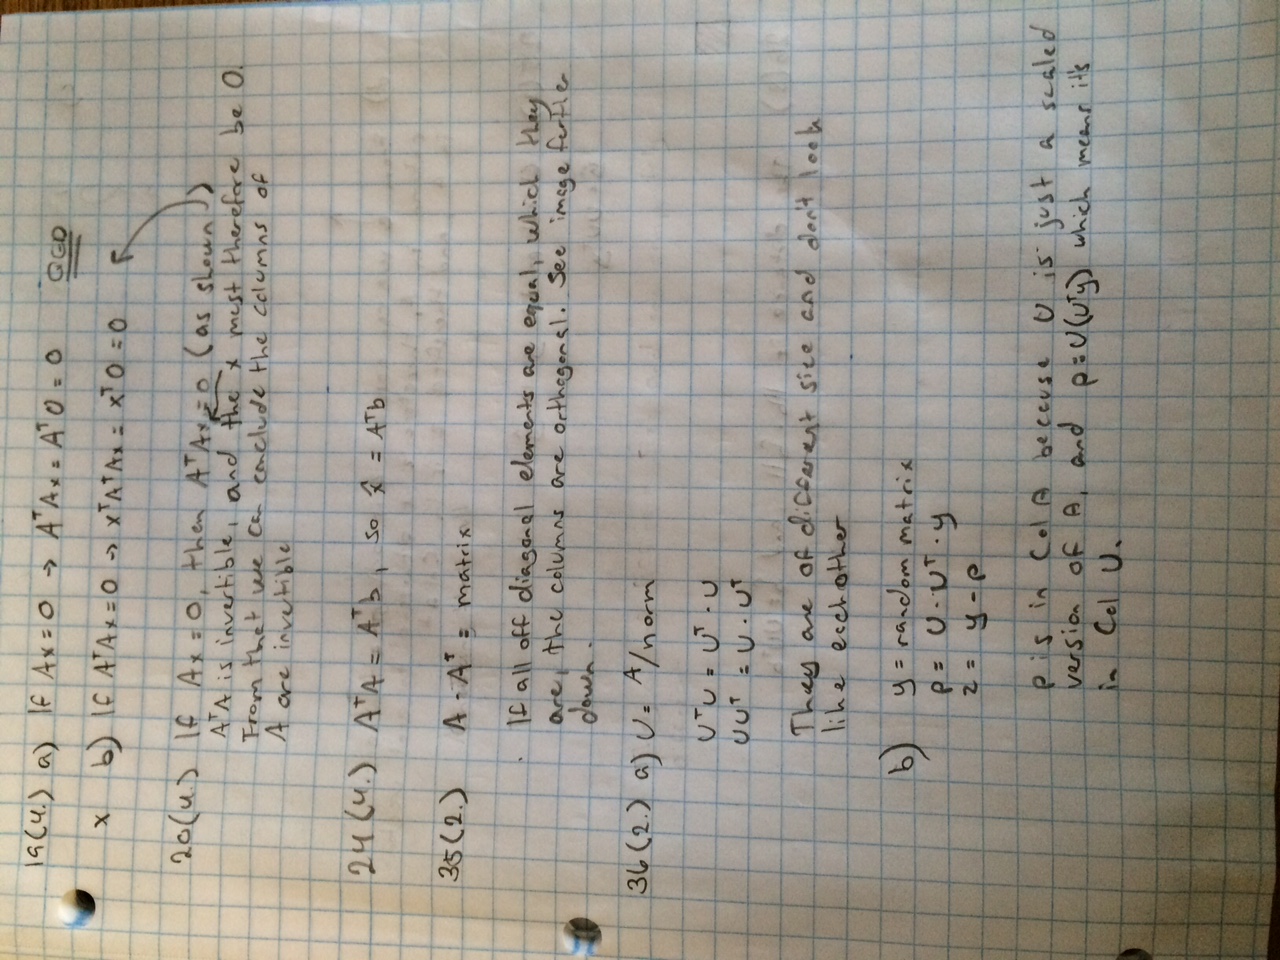 19(4.) a) If Ax=0 → AᵀAx = Aᵀ0 = 0 QED
x b) If AᵀAx=0 → xᵀAᵀAx = xᵀ0 = 0
20(4.) If Ax=0, then AᵀAx=0 (as shown)
AᵀA is invertible, and the x must therefore be 0.
From that we can conclude the columns of
A are invertible
24(4.) AᵀA = Aᵀb, so x̂ = Aᵀb
35(2.) A · Aᵀ = matrix
If all off diagonal elements are equal, which they
are, the columns are orthogonal. See image further
down.
36(2.) a) U = A/norm
UᵀU = Uᵀ · U
UUᵀ = U · Uᵀ
They are of different size and don't look
like eachother
b) y = random matrix
p = U · Uᵀ · y
z = y - p
p is in Col A because U is just a scaled
version of A, and p=U(Uᵀy) which means it's
in Col U.